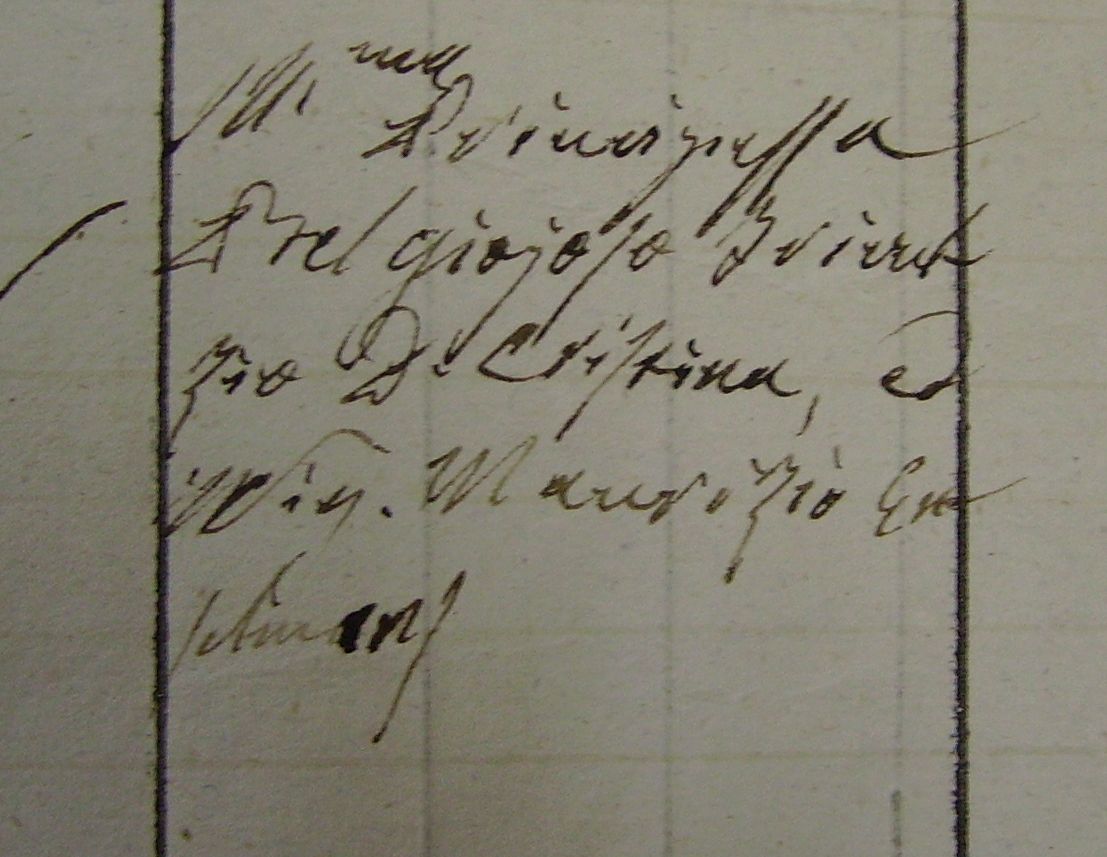 Ill.ma Principessa
Belgiojoso Trivul
zio D. Cristina, ed
il Sig. Maurizio